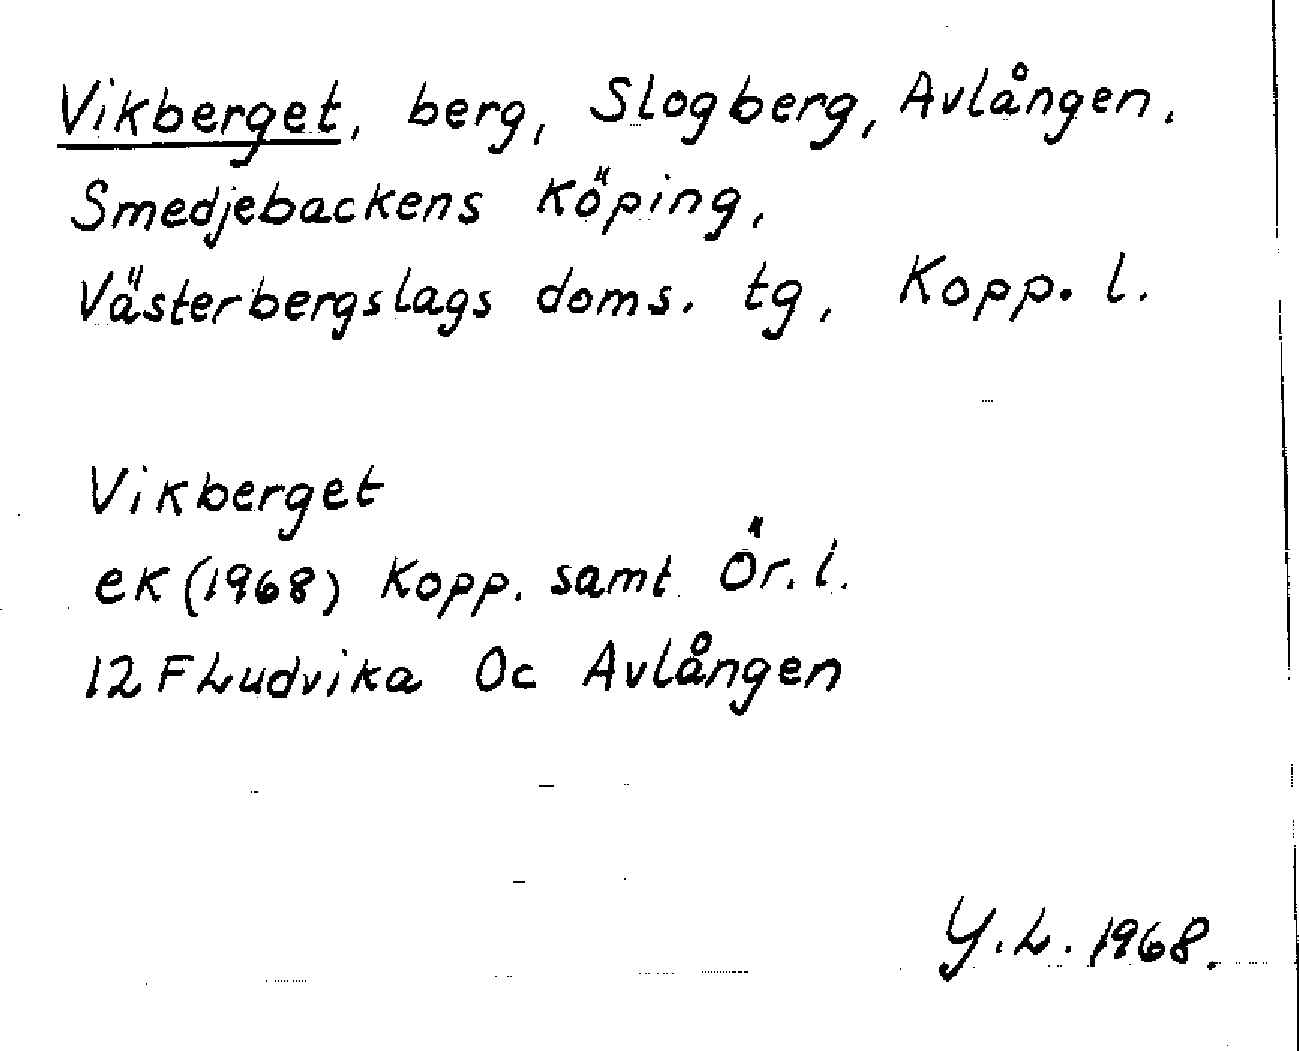 Vikberget, berg, Slogberg, Avlången.
Smedjebackens Köping,
Västerbergslags doms. tg, Kopp. l.
Vikberget
ek (1968) Kopp. samt Ör. l.
12 F Ludvika Oc Avlången
Y. L. 1968.